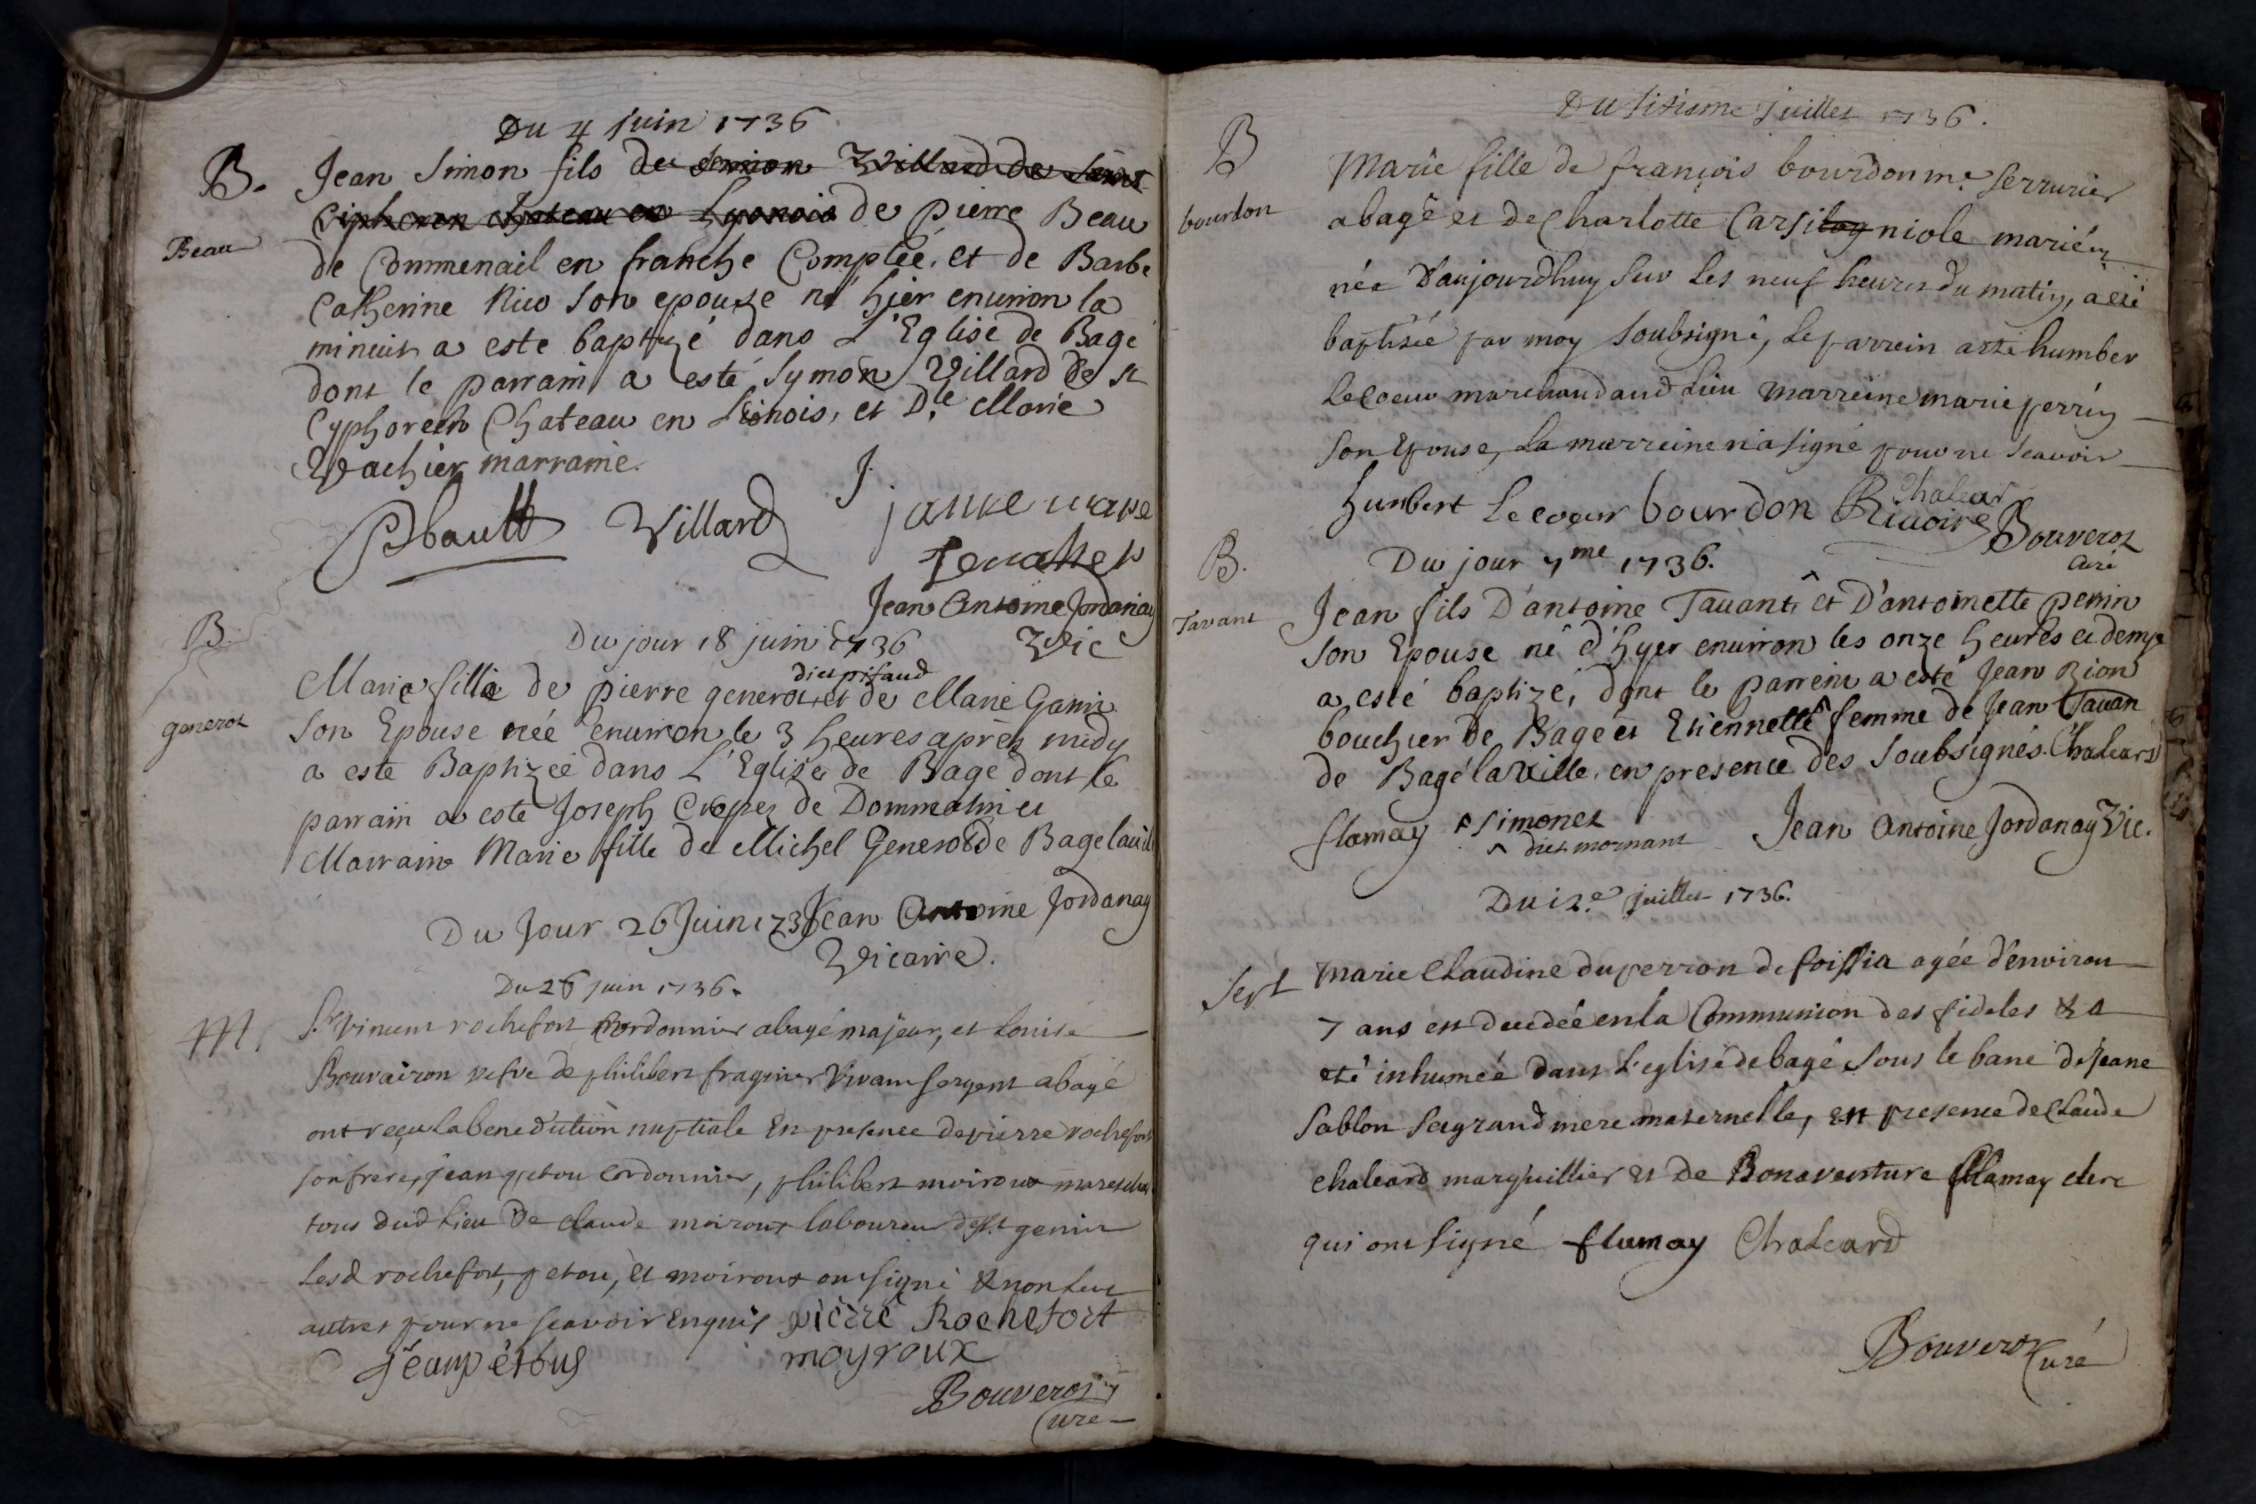 Du 4 juin 1736
B. Jean Simon fils de Simon Villard de Saint
Ciphorien chateau en Lyonois de pierre Beau
Beau
de Commenail en franche Comptée, et de Barbe
Catherine Rico son epouze né hjer enuiron la
minuit a este baptizé dans L'Eglise de Bagé
dont le parrain a esté Symon Villard de St
Cyphoreen Chateau en Lionois, et D.le Marie
Vachier marraine.
Villard
Jean Antoine Jordanay
Vic
B.
Du jour 18 juin 1736
diet pifaud
Marie fille de pierre generot, et de Marie Gamin
generot
son Epouse née enuiron le 3 heures aprèz midy
a este Baptizée dans L'Eglise de Bagé dont le
parrain a esté Joseph Crepez de Dommatin et
Marrain Marie fille de Michel Generot de Bagelauill
Du Jour 26 Juin 1736 Jean Antoine Jordanay
Vicaire.
Du 26 juin 1736.
M. Sr vincent rochefort Cordonnier abagé majeur, et Louise
Bouvairon vefve de philibert fragnier vivant sergent abagé
ont reçu la benediction nuptiale En presence de pierre rochefort
son frere, jean petou cordonnier, philibert moiroux mareschal
tous dud lieu de claude moiroux laboureur de St genir
Lesd rochefort, petou, et moiroux ont signé & non les
autres pour ne scavoir enquis pierre Rochefort
jean pétoug moyroux
Bouverot
Curé
Du sixieme juillet 1736.
B
Marie fille de françois bourdon me. serrurier
bourdon
abagé et de Charlotte Carsitog niole mariéz
née d'aujourdhuy sur les neuf heures du matin, a eté
baptisée par moy soubsigné, le parrein a eté humber
Lecoeur marchand aud lieu marreine marie perrin
son Epouse, la marreine n'a signé pour ne scavoir
humbert Lecoeur bourdon Chalear
Rivoire Bouverot
Curé
B. Du jour 7me 1736.
Tavant Jean fils D'antoine Tauant^ et D'antoinette perrin
son Epouse né d'hyer enuiron les onze heures et demye
a esté baptizé, dont le parrein a esté Jean Rion
bouchier de Bagé et Etiennette femme de Jean Tauan
de Bagé la Ville, en presence des soubsignés. Chaleard
flamay simonet Jean Antoine Jordanay Vic.
^ diet mornant
Du 12.e juillet 1736.
Sept marie Claudine duperron de foissia agée d'environ
7 ans est decedée en la Communion des fideles & a
eté inhumée dans L'eglise de bagé sous le banc de Jeane
Sablon sa grand mere maternelle, en presence de Claude
chaleard marguillier et de Bonaventure flamay clerc
qui ont signé flamay Chaleard
Bouverot
Curé